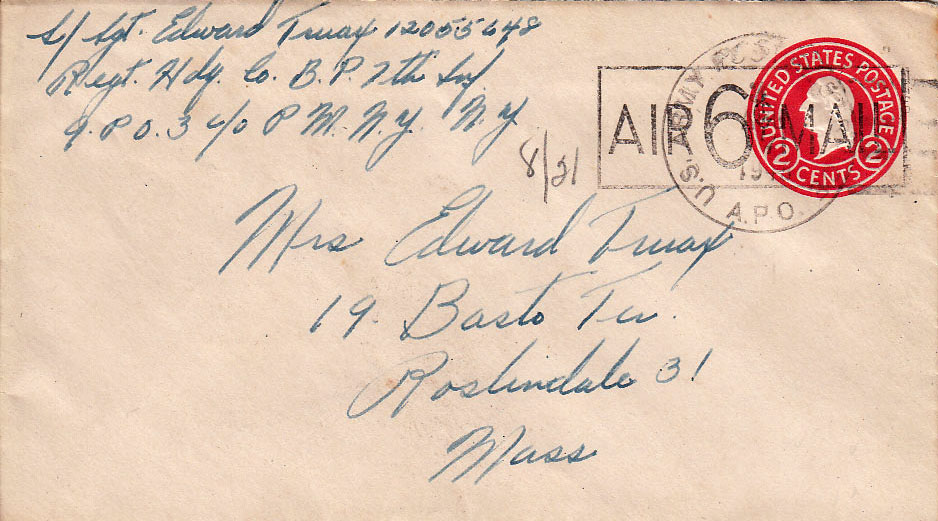 S/Sgt. Edward Truax 12055648
Regt. Hdq. Co. B.P. 7th Inf
A.P.O. 3 c/o P.M. N.Y. N.Y
8/21
U.S. ARMY POST
A.P.O.
19
AIR 6¢ MAIL
UNITED STATES POSTAGE
2 CENTS 2
Mrs Edward Truax
19. Basto Ter.
Roslindale 31
Mass